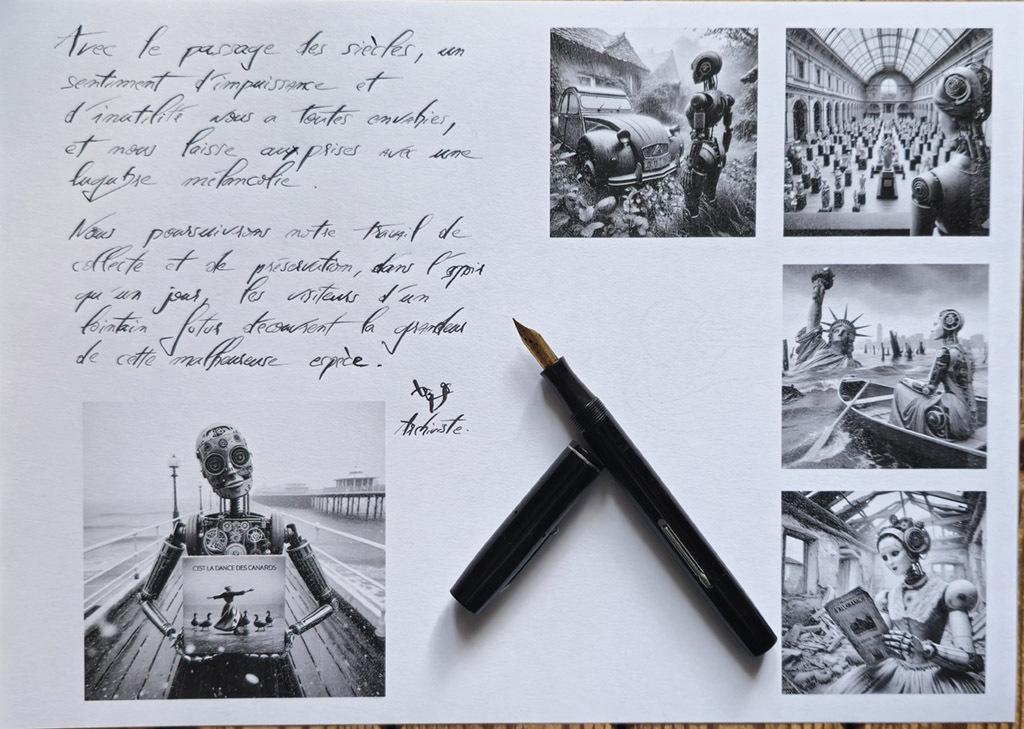 Avec le passage des siècles, un
sentiment d'impuissance et
d'inutilité nous a toutes envahies,
et nous laisse aux prises avec une
lugubre mélancolie.
Nous poursuivrons notre travail de
collecte et de préservation, dans l'espoir
qu'un jour, les visiteurs d'un
lointain futur découvrent la grandeur
de cette malheureuse espèce.
Archiviste.
C'EST LA DANCE DES CANARDS